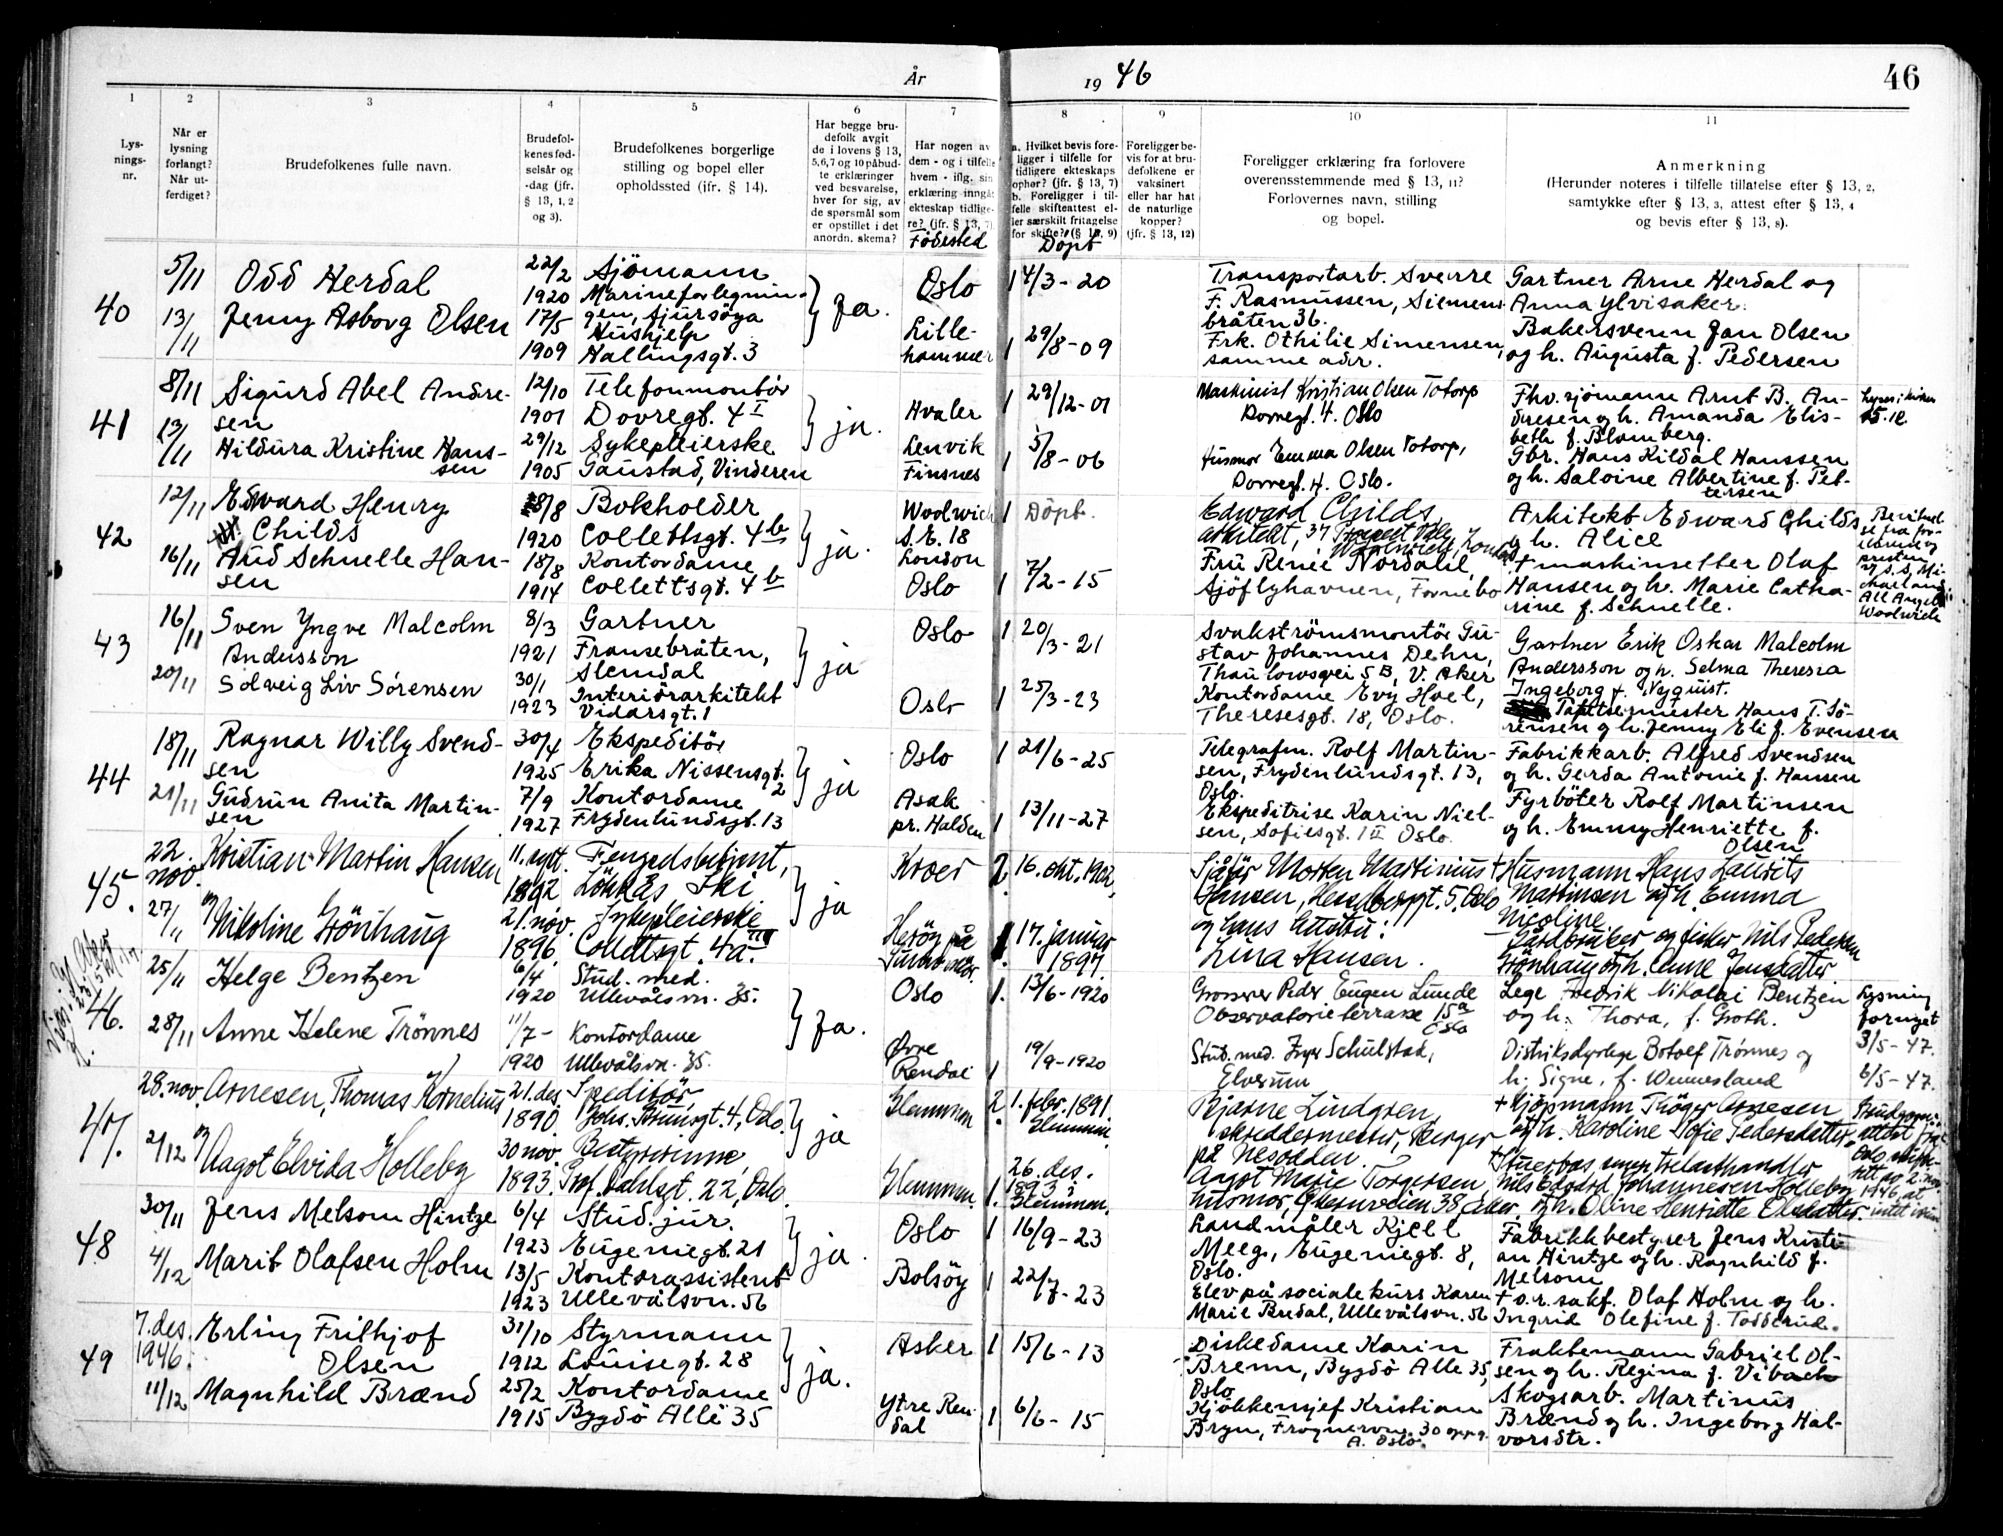 År 1946
46
1 2 3 4 5 6 7 8 9 10 11
Lys-
nings-
nr.
Når er
lysning
forlangt?
Når ut-
ferdiget?
Brudefolkenes fulle navn.
Brudefol-
kenes fød-
selsår og
-dag (jfr.
§ 13, 1, 2
og 3).
Brudefolkenes borgerlige
stilling og bopel eller
opholdssted (jfr. § 14).
Har begge bru-
defolk avgit
de i lovens § 13,
5,6,7 og 10 påbud-
te erklæringer
ved besvarelse,
hver for sig, av
de spørsmål som
er opstillet i det
anordn. skema?
Har nogen av
dem - og i tilfelle
hvem - iflg. sin
erklæring inngåt
ekteskap tidlige-
re? (jfr. § 13, 7)
Fødested
a. Hvilket bevis fore-
ligger i tilfelle for
tidligere ekteskaps
ophør? (jfr. § 13, 7)
b. Foreligger i til-
felle skifteattest el-
ler særskilt fritagelse
for skifte? (§ 13, 9)
Döpt
Foreligger be-
vis for at bru-
defolkene er
vaksinert
eller har hat
de naturlige
kopper?
(jfr. § 13, 12)
Foreligger erklæring fra forlovere
overensstemmende med § 13, 11?
Forlovernes navn, stilling
og bopel.
Anmerkning
(Herunder noteres i tilfelle tillatelse efter § 13, 2,
samtykke efter § 13, 3, attest efter § 13, 4
og bevis efter § 13, 8).
40
5/11
13/11
Odd Herdal
Jenny Asborg Olsen
22/2
1920
17/5
1909
Sjömann
Marineforlegnin-
gen, Sjursöya
Hushjelp
Hallingsgt. 3
Ja.
Oslo
Lille-
hammer
1 4/3-20
1 29/8-09
Transportarb. Sverre
F. Rasmussen, Simens-
bråten 36.
Frk. Othilie Simensen,
samme adr.
Gartner Arne Herdal og
Anna Ylvisaker.
Bakersvenn Jan Olsen
og h. Augusta f. Pedersen
41
8/11
13/11
Sigurd Abel Andre-
sen
Hildura Kristine Hans-
sen
12/10
1901
29/12
1905
Telefonmontör
Dovregt. 4 I
Sykepleierske
Gaustad, Vinderen
ja.
Hvaler
Lenvik
Finsnes
1 29/12-01
1 5/8-06
Maskinist Kristian Olsen Totorp
Dovregt. 4. Oslo
Husmor Emma Olsen Totorp,
Dovregt. 4. Oslo.
Fhv. sjömann Arnt B. An-
dresen og h. Amanda Elis-
beth f. Blomberg.
Gbr. Hans Kildal Hanssen
og h. Saloine Albertine f. Pet-
tersen
42
12/11
16/11
Edward Henry
Childs
Aud Schnelle Han-
sen
8/8
1920
18/8
1914
Bokholder
Collettsgt. 4b
Kontordame
Collettsgt. 4b
ja.
Woolwich
S.E. 18
London
Oslo
1 Döpt.
1 7/2-15
Edward Childs,
arkitekt, 37
Woolwich, London
Fru Renée Nordahl,
Sjöflyhavnen, Fornebo
Arkitekt Edward Childs
og h. Alice
+ maskinsetter Olaf
Hansen og h. Marie Catha-
rine f. Schnelle.
43
16/11
20/11
Sven Yngve Malcolm
Andersson
Solveig Liv Sörensen
8/3
1921
30/1
1923
Gartner
Fransebråten,
Slemdal
Interiörarkitekt
Vidarsgt. 1
ja
Oslo
Oslo
1 20/3-21
1 25/3-23
Svakströmsmontör Gu-
stav Johannes Dehn,
Thaulowsvei 5B, V. Aker
Kontordame Evy Hoel,
Theresesgt. 18, Oslo.
Gartner Erik Oskar Malcolm
Andersson og h. Selma Theresia
Ingeborg f. Nyquist.
Tapetsermester Hans T. Sö-
rensen og h. Jenny Eli f. Evensen
44
18/11
21/11
Ragnar Willy Svend-
sen
Gudrun Anita Martin-
sen
30/4
1925
7/9
1927
Ekspeditör
Erika Nissensgt.
2
Kontordame
Frydenlundsgt. 13
ja
Oslo
Asak
pr. Halden
1 21/6-25
1 13/11-27
Telegrafm. Rolf Martin-
sen, Frydenlundsgt. 13,
Oslo.
Ekspeditrise Karin Niel-
sen, Sofiesgt. 1 II Oslo.
Fabrikkarb. Alfred Svendsen
og h. Gerda Antonie f. Hansen
Fyrböter Rolf Martinsen
og h. Emmy Henriette f.
Olsen
45.
22.
nov.
27/11
Kristian Martin Hansen
og
Nikoline Grönhaug
11. sept.
1892
21. nov.
1896.
Fengselsbetjent,
Ski
Sykepleierske
Collettsgt. 4a III
ja
Kroer
Heröy på
Sunnmöre.
2. 16. okt. 1902,
1. 17. januar
1897.
Sjåför Morten Martinius
Hansen, Hesselbergsgt. 5, Oslo
og hans hustru:
Lina Hansen.
+ Husmann Hans Laurits
Martinsen og h. Emma
Nicoline
Gårdbruker og fisker Nils Pedersen
Grönhaug og h. Anne Jensdatter
46.
25/11
28/11
Helge Bentzen
Anne Helene Trönnes
6/4
1920
11/7-
1920
Stud. med.
Ullevålsvn. 35.
Kontordame
Ullevålsvn. 35.
Ja.
Oslo
Øvre
Rendal
1. 13/6-1920
1 19/9-1920
Grosserer Peder Eugen Lunde
Observatorie terrasse 15a
Oslo
Stud. med. Schulstad,
Elverum
Lege Fredrik Nikolai Bentzen
og h. Thora, f. Groth.
Distriktsdyrlege Botolf Trönnes og
h. Signe, f. Wennesland
Lysning
fornyet
3/5-47.
6/5-47.
47.
28. nov.
2/12
Arnesen, Thomas Kornelius
og
Aagot Elvida Holleby
21. des.
1890
30 nov.
1893.
Speditör
Johs. Brunsgt. 4, Oslo.
Bestyrerinne
Prof. Dahlsgt. 22, Oslo.
ja
Glemmen
Glemmen.
2. 1. febr. 1891.
Glemmen.
1. 26. des.
1893 i
Glemmen.
Bjarne Lindgren,
skreddermester, Berger
på Nesodden.
Aagot Marie Torgersen,
husmor, 38 Aker.
+ Kjöpmann Tröger Arnesen
og h. Karoline Sofie Pedersdatter.
+ Stuerbas, senere trelasthandler
Nils Edvard Johannesen Holleby
og h. Oline Henriette Olsdatter.
48.
30/11
4/12
Jens Melsom Hintze
Marit Olafsen Holm
6/4
1923
13/5
1923
Stud. jur.
Eugeniegt. 21
Kontorassistent
Ullevålsvn. 56
ja.
Oslo
Bolsöy
1 16/9-23
1 22/7-23
Landmåler Kjell
Meeg, Eugeniegt. 8,
Oslo.
Elev på sociale kurs Karen
Marie Bredal, Ullevålsvn. 56
Fabrikkbestyrer Jens Kristi-
an Hintze og h. Ragnhild f.
Melsom
+ o.r.sakf. Olaf Holm og h.
Ingrid Olefine f. Todderud.
49
7. des.
1946.
11/12
Erling Frithjof
Olsen
Magnhild Brænd
31/10
1912
25/2
1915
Styrmann
Louisegt. 28
Kontordame
Bygdö Allé 35
ja.
Asker
Ytre Ren-
dal
1 15/6-13
1 6/6-15
Diskedame Karin
Brenn, Bygdö Alle 35,
Oslo
Kjökkensjef Kristian
Bryn, Frognervn. 30 oppg.
A. Oslo.
Fraktemann Gabriel Ol-
sen og h. Regina f. Vibach
Skogsarb. Martinus
Brænd og h. Ingeborg Hal-
vorsdtr.